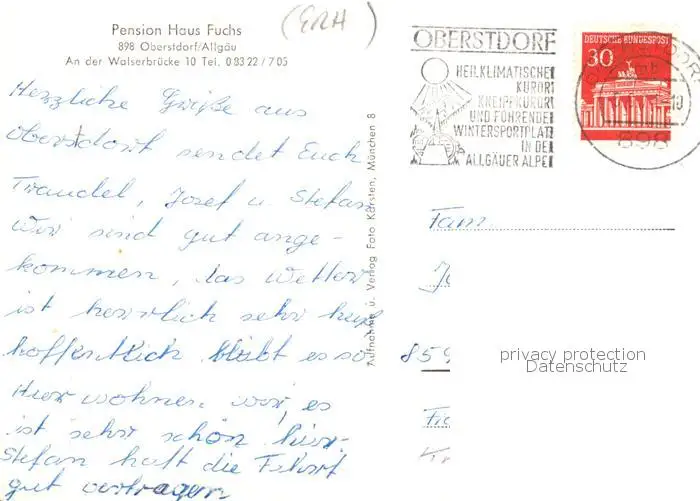 Pension Haus Fuchs
898 Oberstdorf/Allgäu
An der Walserbrücke 10 Tel. 0 83 22 / 7 05
(ERH)
Herzliche Grüße aus
Oberstdorf sendet Euch
Traudel, Josef u. Stefan
Wir sind gut ange-
kommen, das Wetter
ist herrlich sehr heiß
hoffentlich bleibt es so
Hier wohnen wir, es
ist sehr schön hier.
Stefan hatt die Fahrt
gut vertragen
Aufnahme u. Verlag Foto Kersten, München 8
OBERSTDORF
HEILKLIMATISCHE
KURORT
KNEIPPKURORT
UND FÜHRENDE
WINTERSPORTPLATZ
IN DE
ALLGÄUER ALPE
DEUTSCHE BUNDESPOST
30
898
Fam.
859
privacy protection
Datenschutz